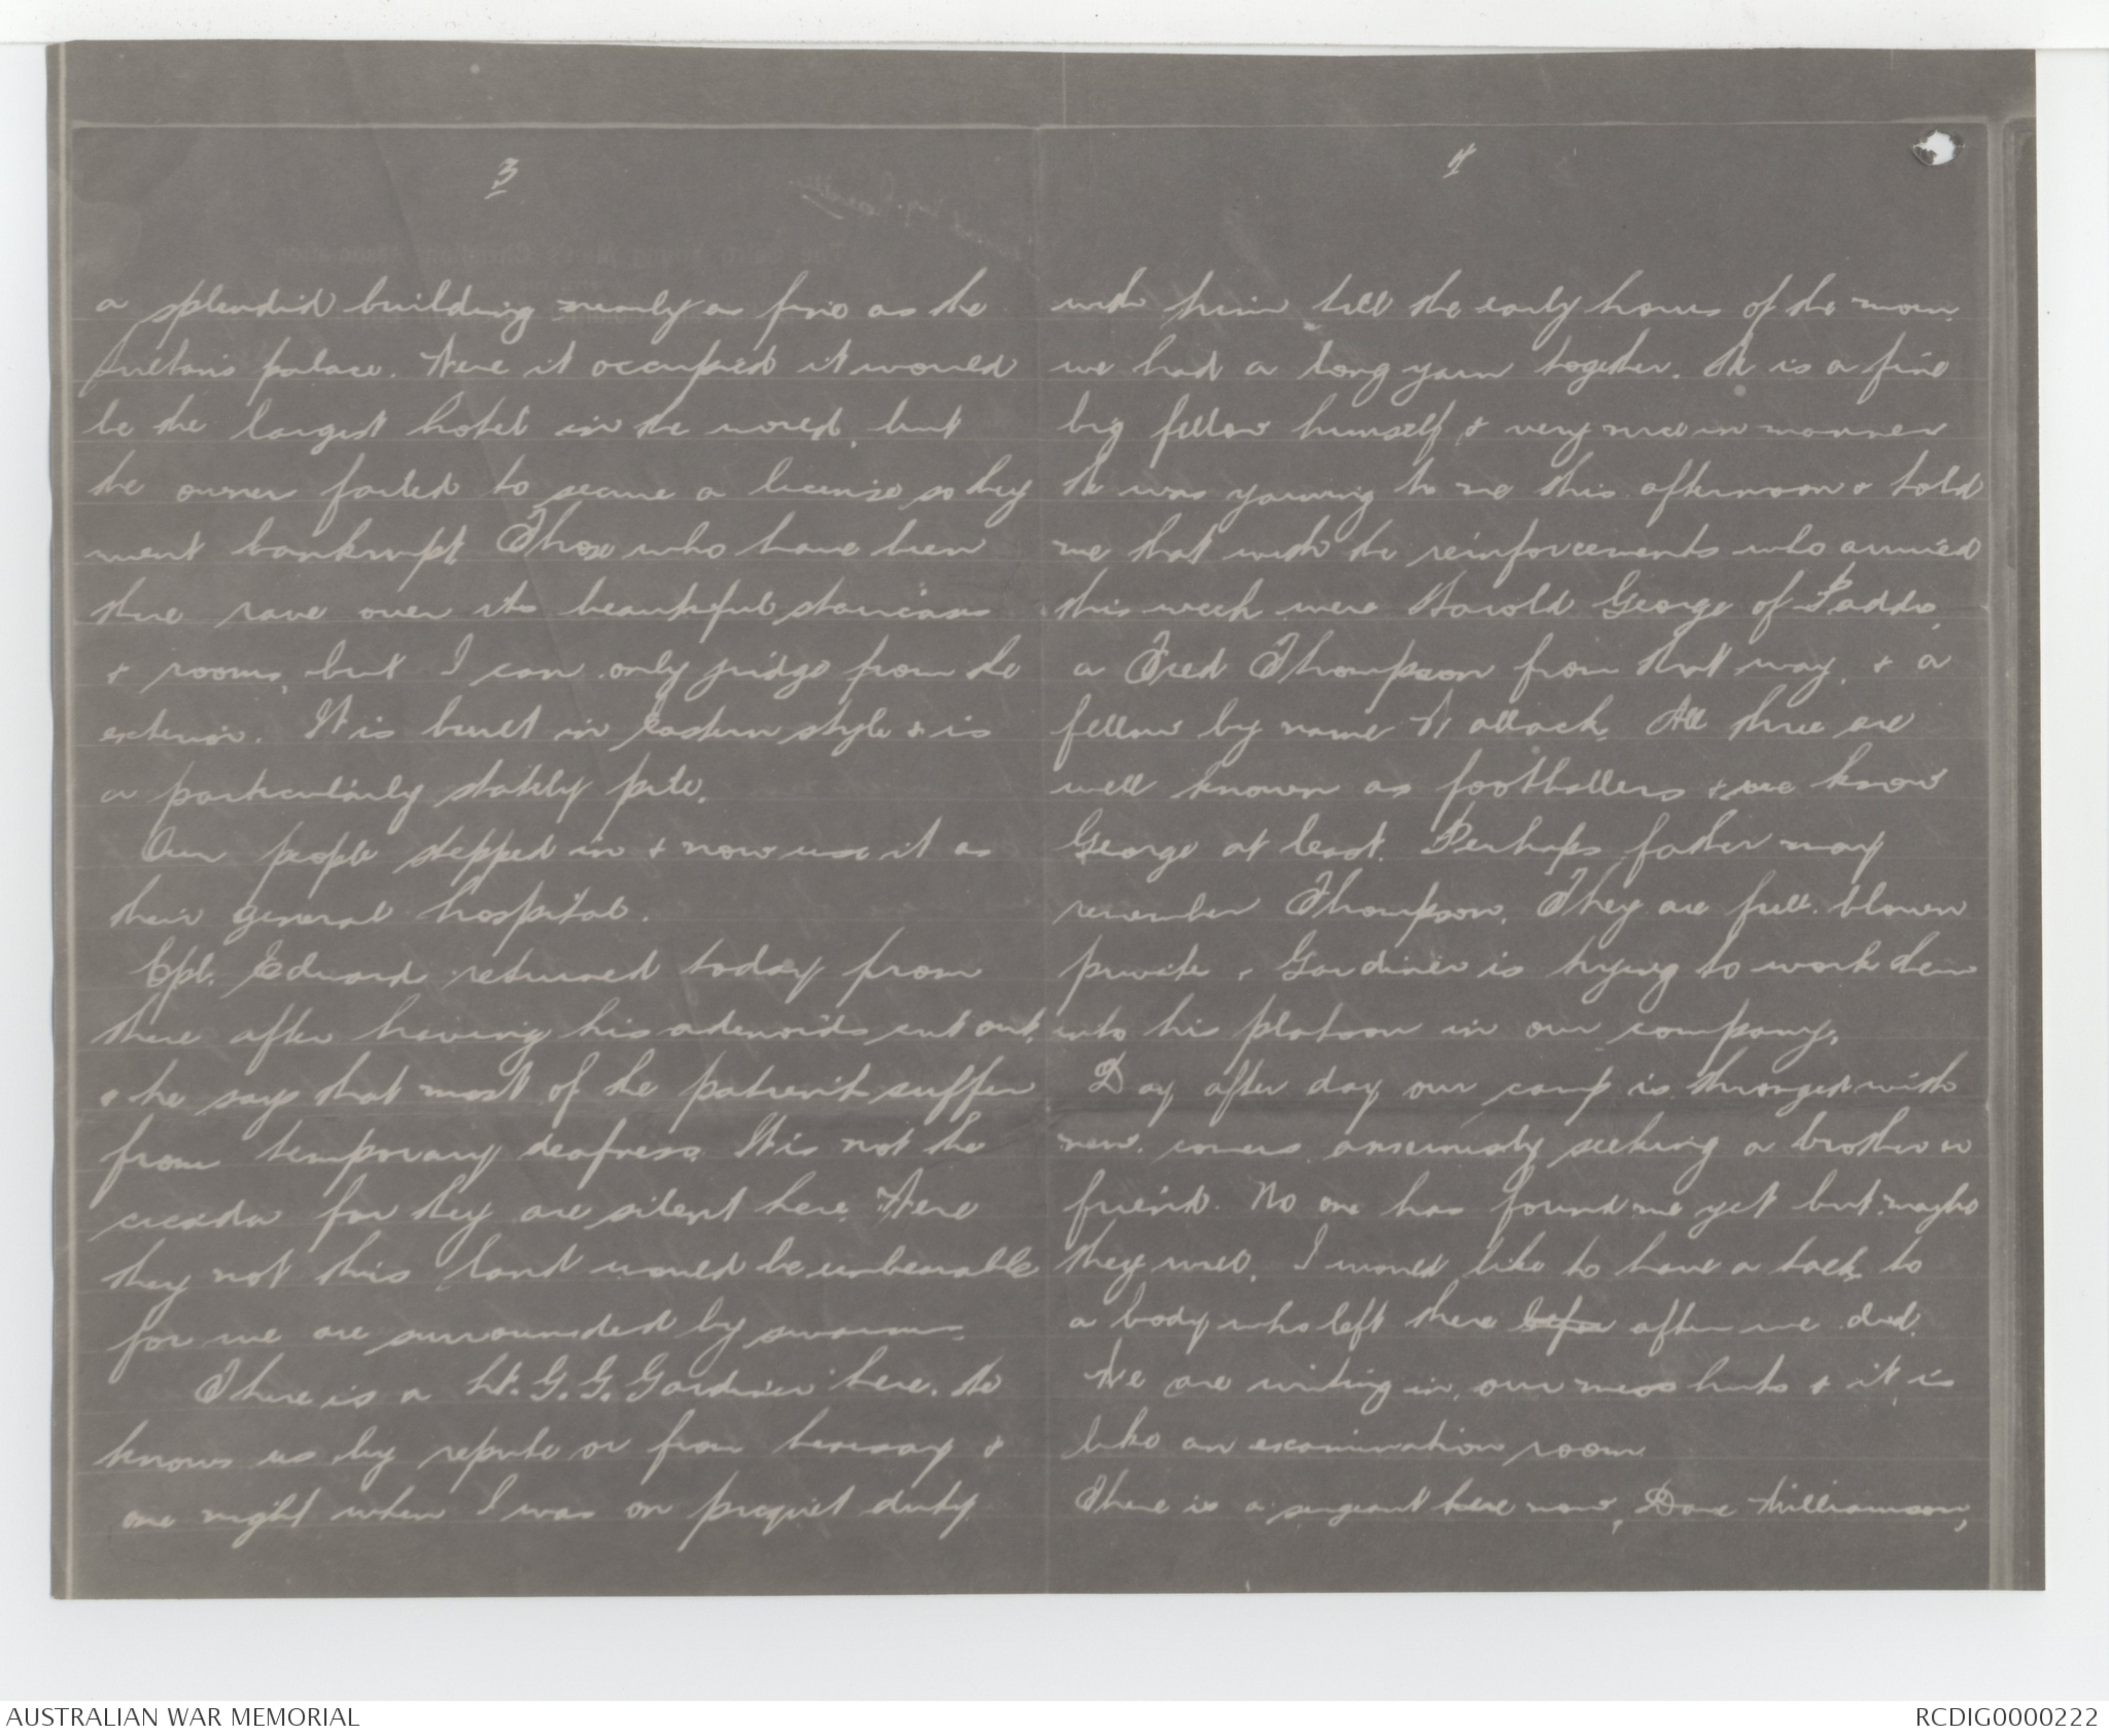 3
a splendid building nearly as fine as the
Sultan's palace. Were it occupied it would
be the largest hotel in the world, but
the owner failed to secure a license so they
went bankrupt. Those who have been
there rave over its beautiful staircases
& rooms, but I can only judge from the
exterior. It is built in Eastern style & is
a particularly stately pile.
Our people stepped in & now use it as
their general hospital.
Cpl. Edward returned today from
there after having his adenoids cut out,
& he says that most of the patients suffer
from temporary deafness. It is not the
cicada for they are silent here. Were
they not this land would be unbearable
for we are surrounded by swarms.
There is a Lt. G. G. Gardiner here. He
knows us by repute or from hearsay &
one night when I was on picquet duty
4
with him till the early hours of the morn.
we had a long yarn together. He is a fine
big fellow himself & very nice in manner
He was yarning to me this afternoon & told
me that with the reinforcements who arrived
this week were Harold George of Paddo,
a Fred Thompson from that way, & a
fellow by name Wallach. All three are
well known as footballers & we know
George at least. Perhaps father may
remember Thompson. They are full blown
private & Gardiner is trying to work them
into his platoon in our company.
Day after day our camp is thronged with
new comers anxiously seeking a brother or
friend. No one has found me yet but maybe
they will. I would like to have a talk to
a body who left there before after we did.
We are writing in our mess huts & it is
like an examination room
There is a sergeant here now, Dave Williamson,
AUSTRALIAN WAR MEMORIAL
RCDIG0000222